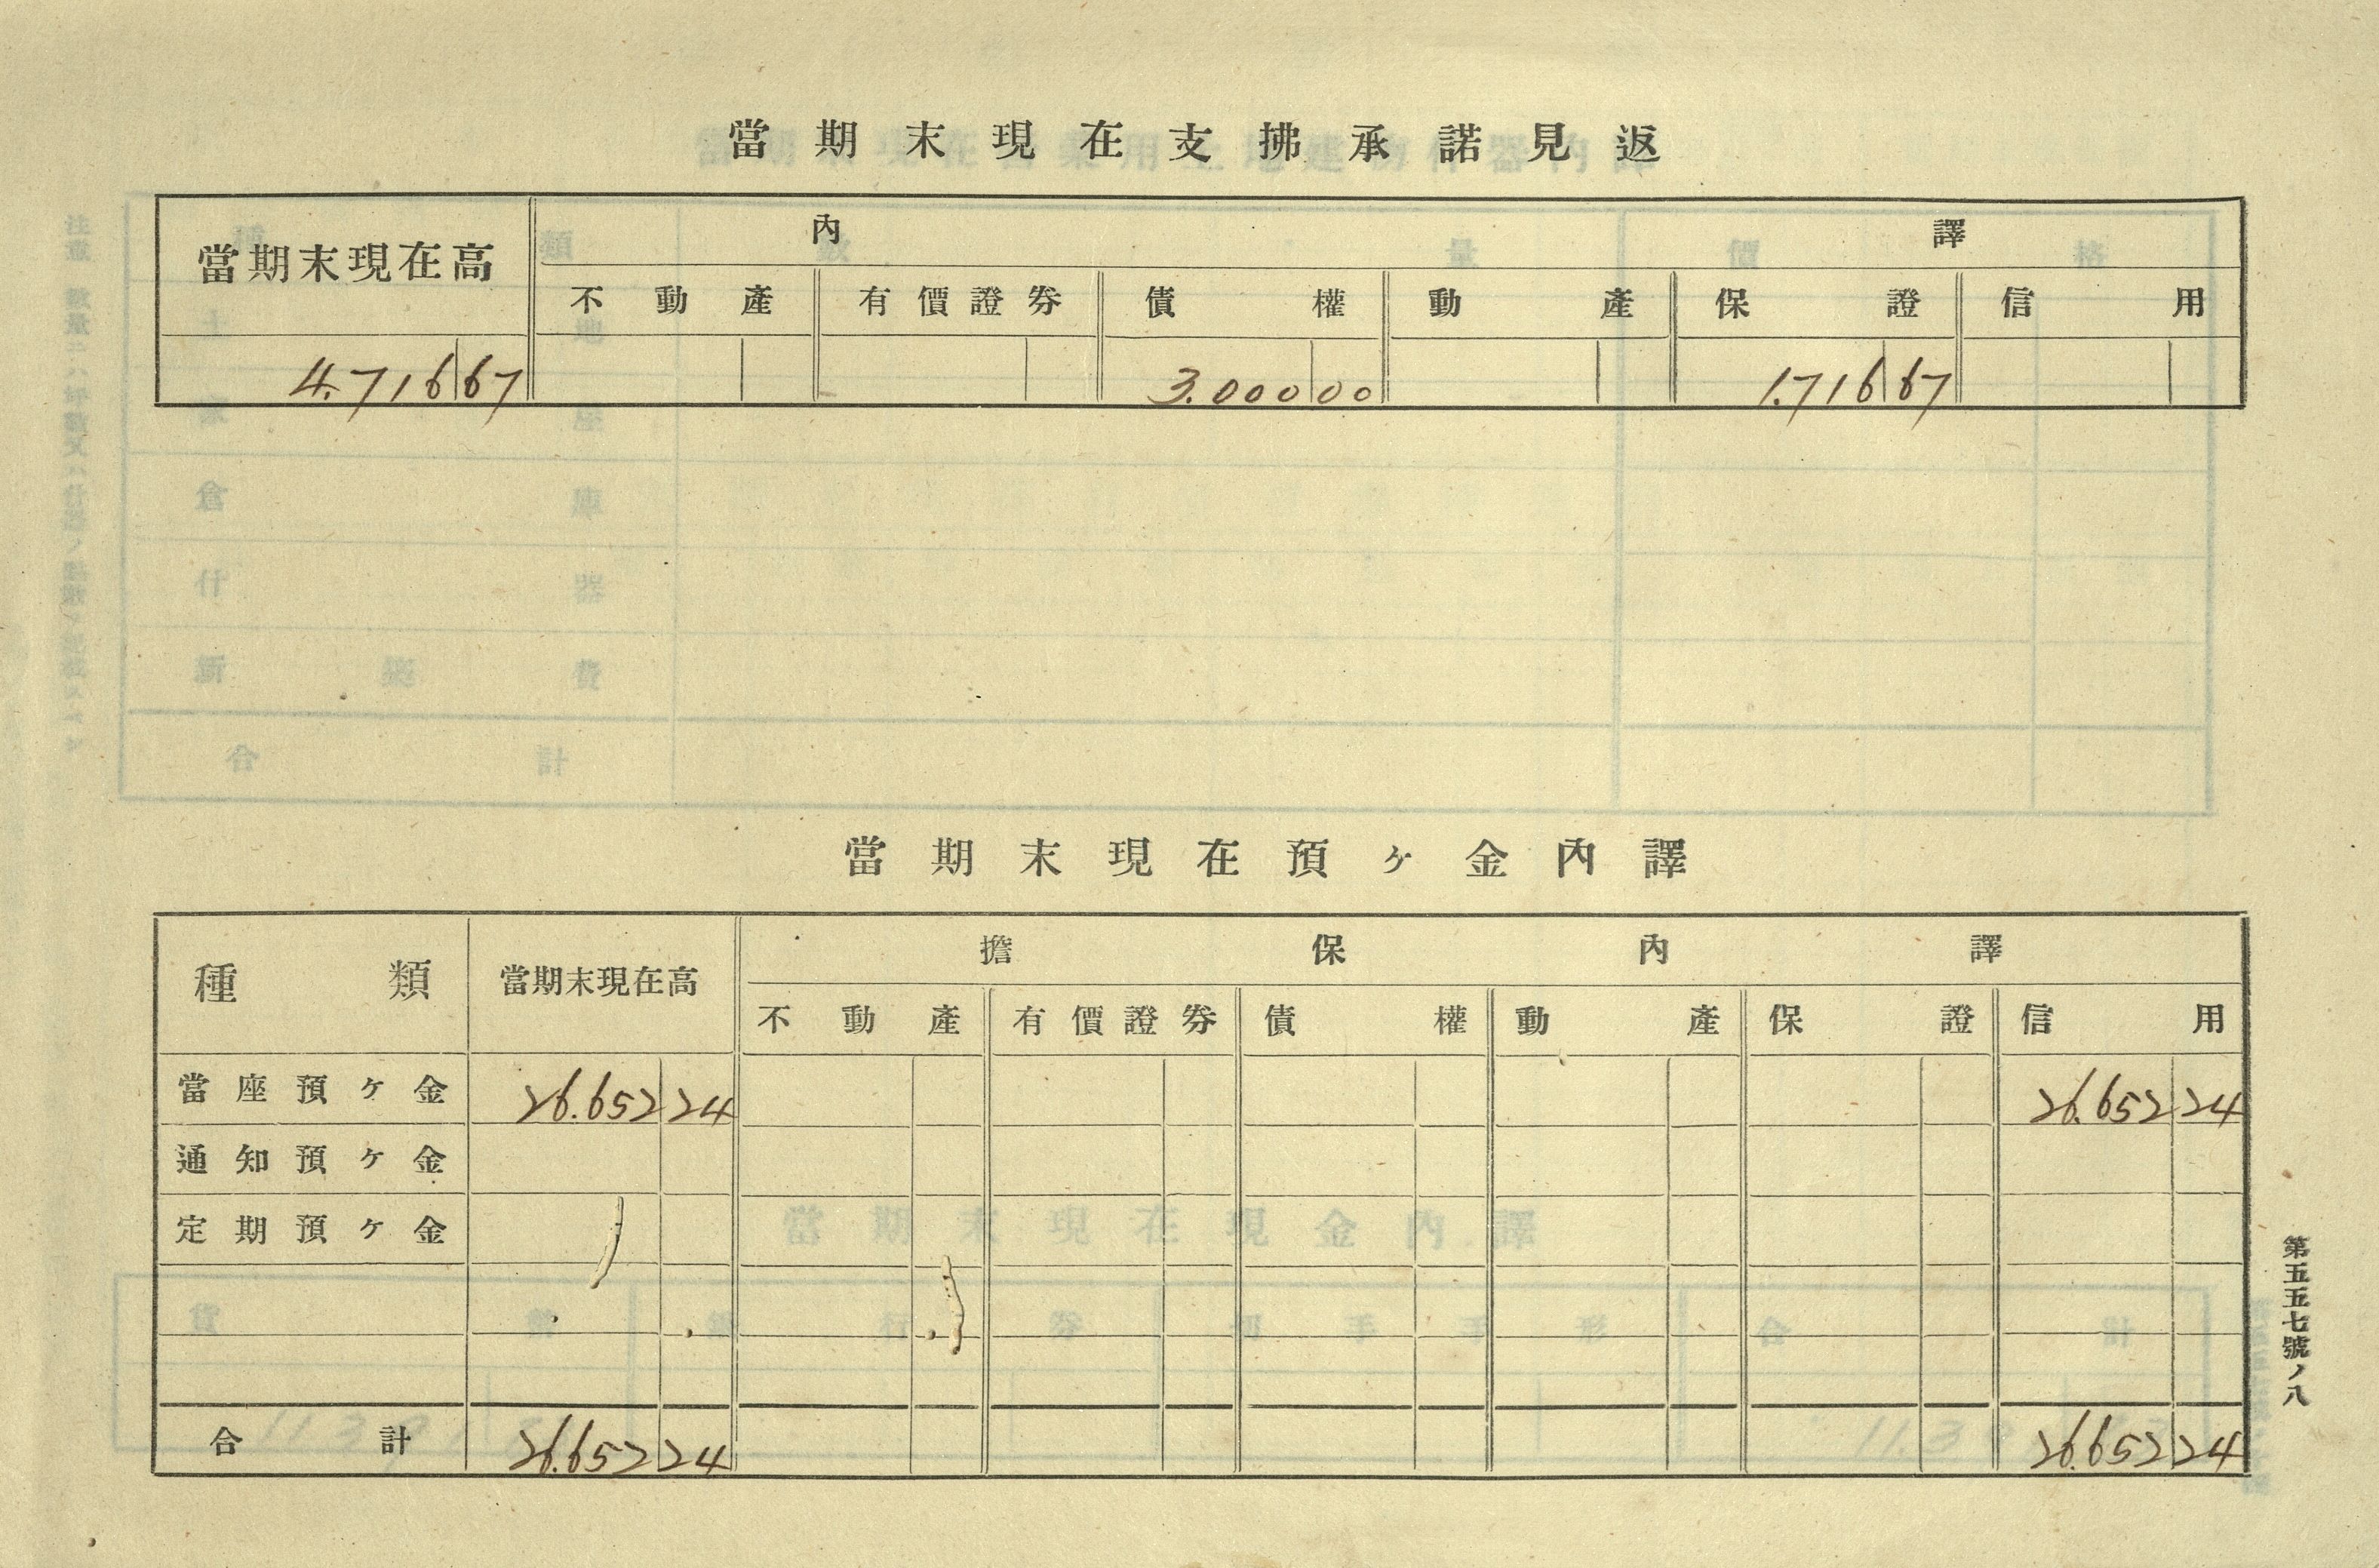 當期末現在支拂承諾見返
當期末現在高 內譯
不動產 有價證券 債權 動產 保證 信用
4.716 67 3.000 00 1.716 67
當期末現在預ヶ金內譯
種類 當期末現在高 擔保內譯
不動產 有價證券 債權 動產 保證 信用
當座預ヶ金 26.652 24 26.652 24
通知預ヶ金
定期預ヶ金
合計 26.652 24 26.652 24
第五五七號ノ八